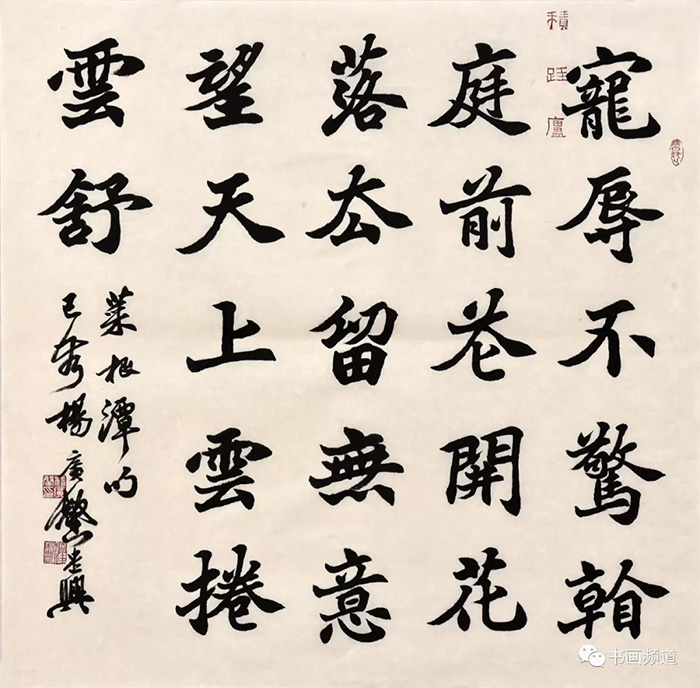 積跬廬
寵辱不驚看
庭前花開花
落去留無意
望天上雲捲
雲舒
菜根潭句
己亥楊廣
书画频道